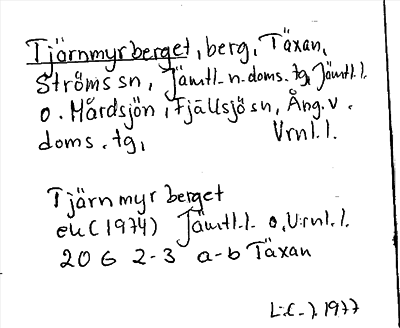 Tjärnmyrberget, berg, Täxan,
Ströms sn, Jämtl. n. doms. tg, Jämtl. l.
o. Mårdsjön, Fjällsjö sn, Ång. v.
doms. tg, Vrnl. l.
Tjärnmyrberget
ek (1974) Jämtl. l. o. V:rnl. l.
20 G 2-3 a-b Täxan
1977